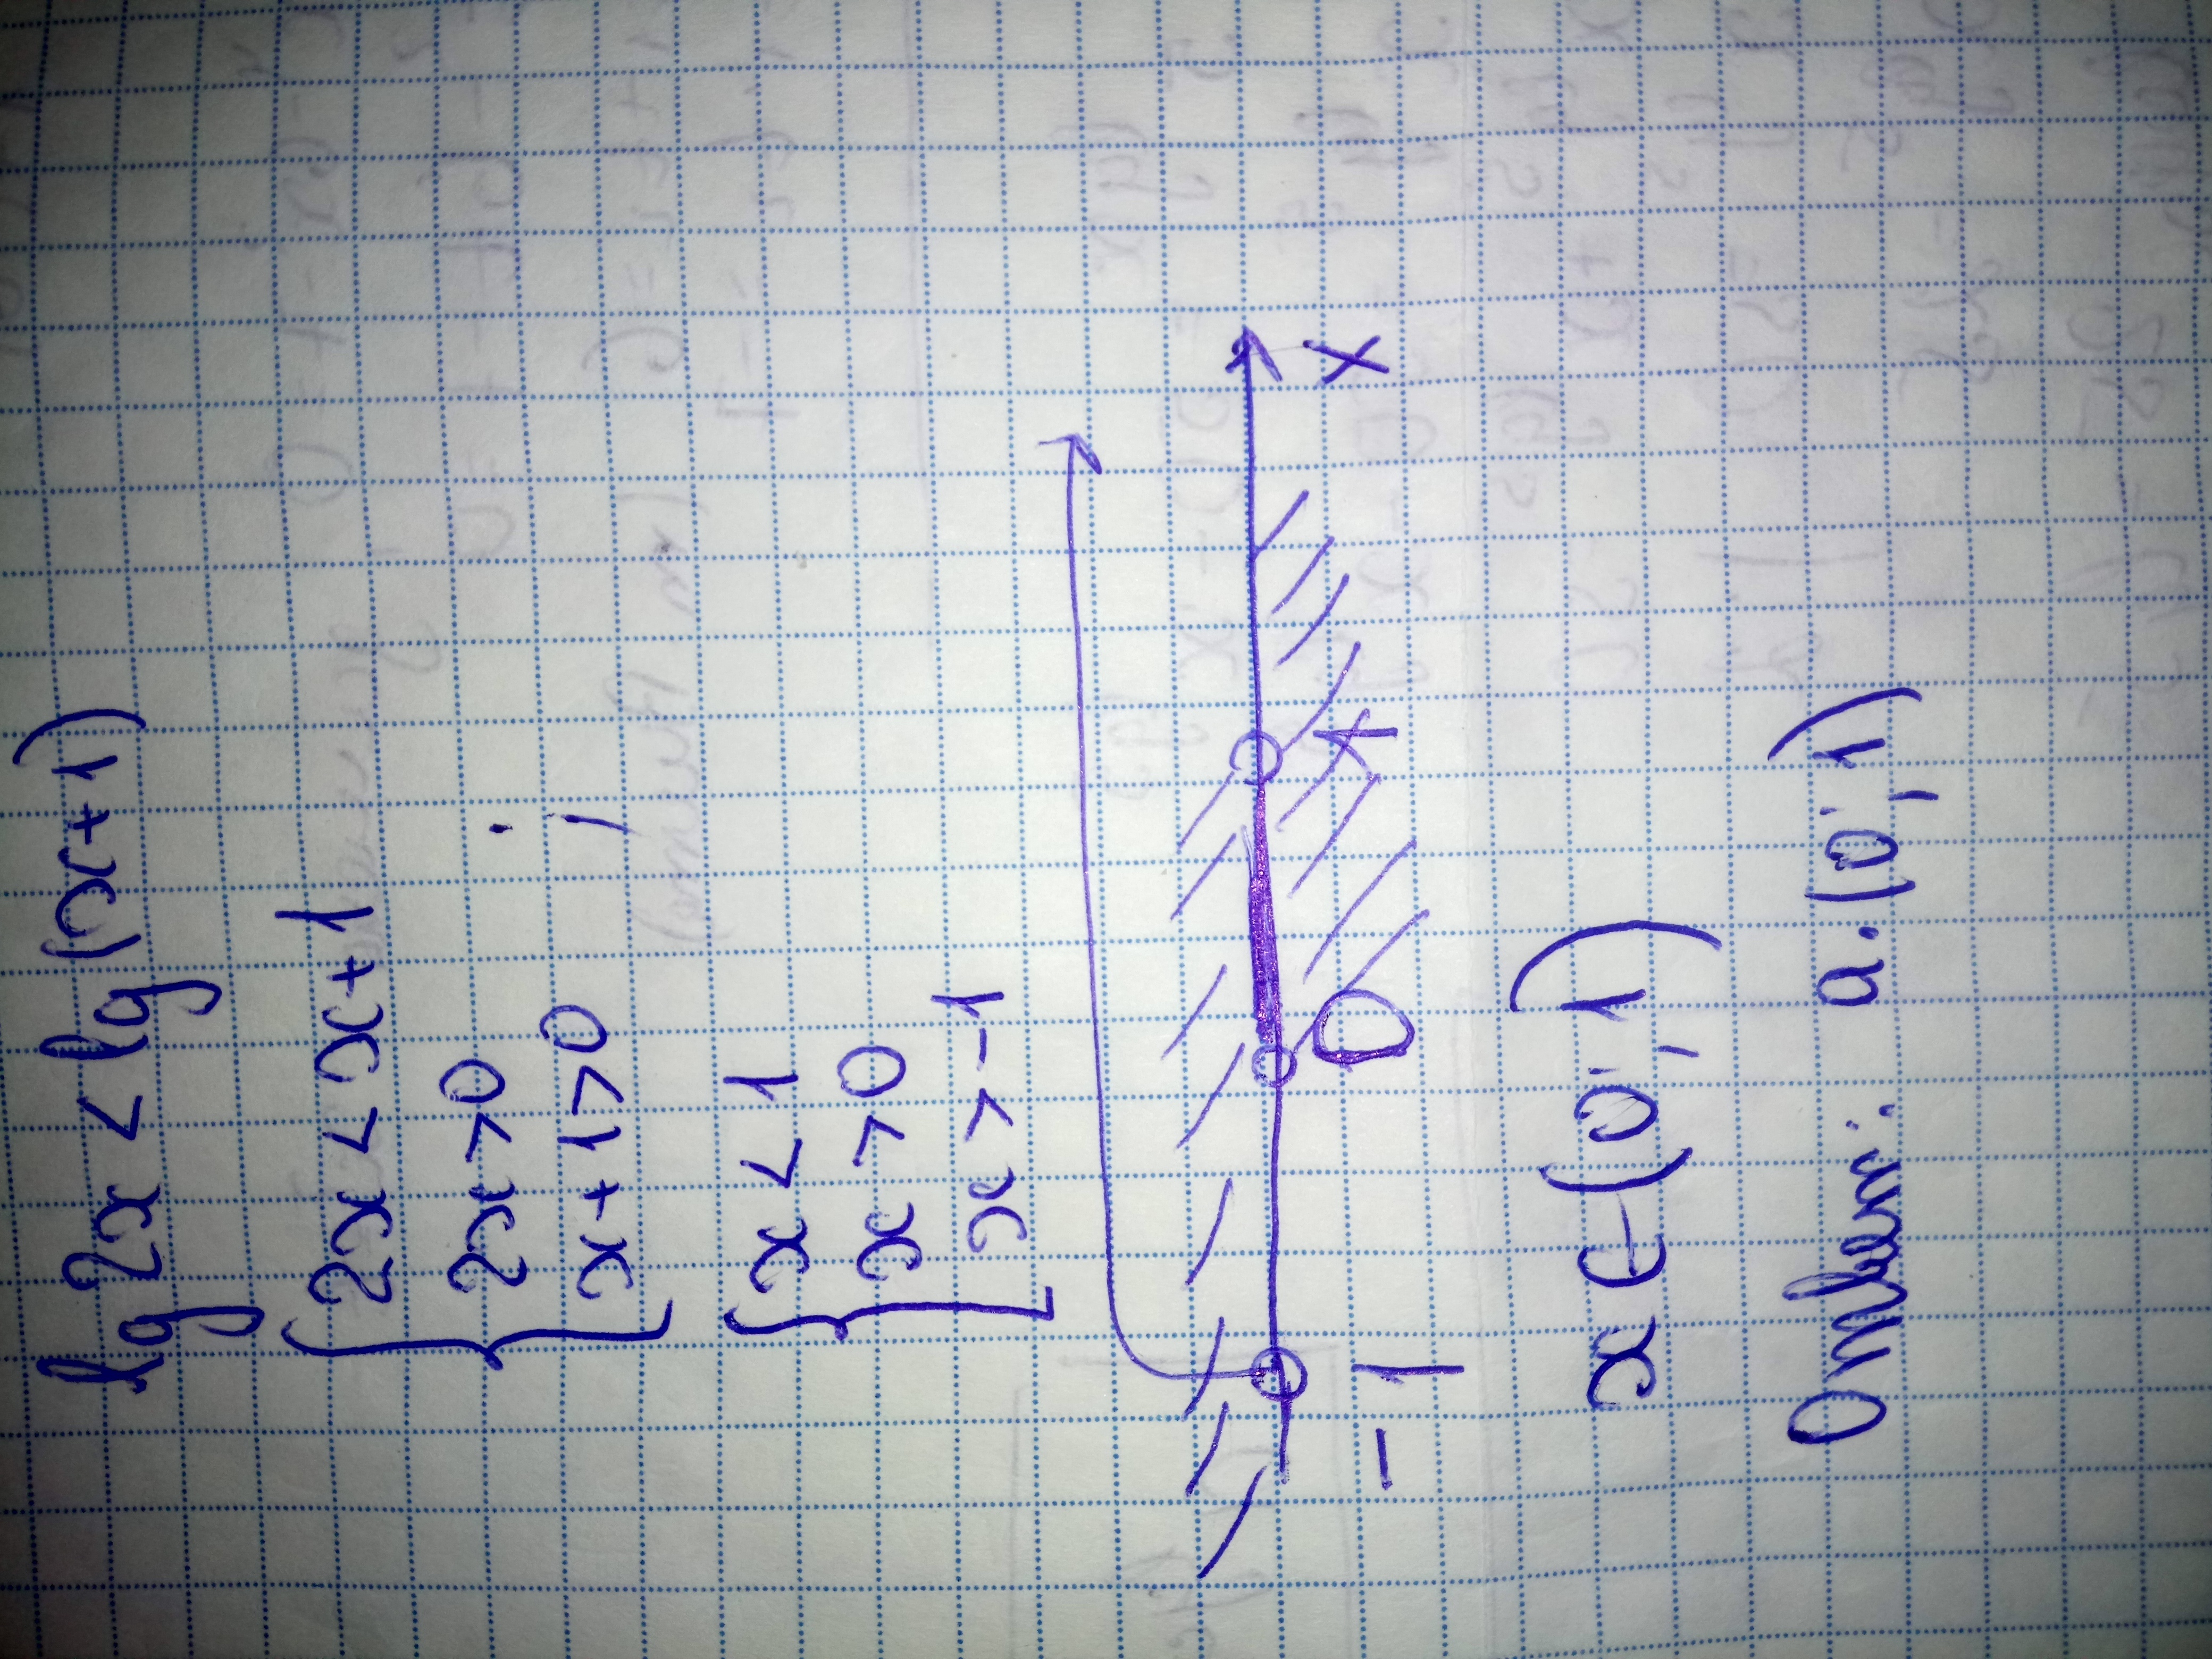 lg2x < lg(x+1)
2x < x+1
2x > 0 ;
x+1 > 0
x < 1
x > 0
x > -1
-1 0 1 x
x ∈ (0; 1)
Ответ: а. (0; 1)